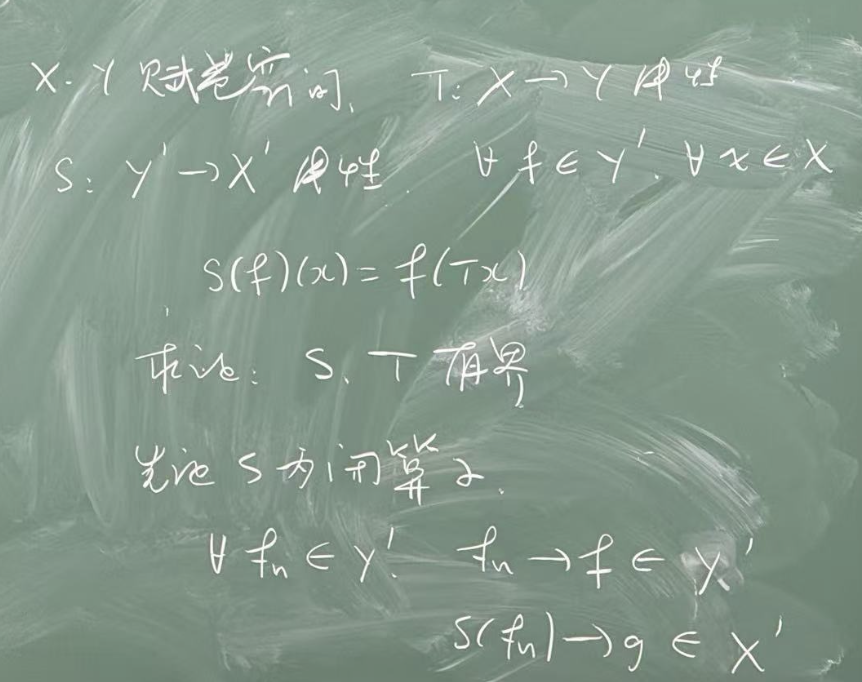 X、Y 赋范空间, T: X→Y 线性
S: Y'→X' 线性. ∀ f ∈ Y', ∀ x ∈ X
S(f)(x) = f(Tx)
求证: S、T 有界
先证 S 为闭算子.
∀ fn ∈ Y'. fn → f ∈ Y'
S(fn) → g ∈ X'